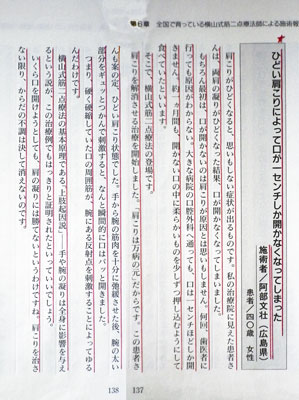 第6章 全国で育っている横山式筋二点療法師による施術者
ひどい肩こりによって口が一センチしか開かなくなってしまった
施術者／阿部文壮（広島県）
患者／四〇歳 女性
肩こりがひどくなると、思いもしない症状が出るものです。私の治療院に見えた患者さ
んは、両肩の凝りがひどくなった結果、口が開かなくなってしまいました。
もちろん最初は、口が開かないのは肩こりが原因とは思いもしません。何回、歯医者に
行っても原因がわからない。大きな病院の口腔外科へ通っても、口は一センチほどしか開
きません。約一カ月間も、開かない口の中に柔らかいものを少しずつ押し込むようにして
食べていたといいます。
そこで、横山式筋二点療法の登場です。
肩こりを解消させる治療を開始しました。「肩こりは万病の元」だからです。この患者さ
んも案の定、ひどい肩こり状態でした。手から腕の筋肉を十分に弛緩させた後、腕の太い
部分をギュッとつかんで刺激すると、なんと瞬間的に口はパッと開きました。
つまり、硬く硬縮していた口の周囲筋が、腕にある反射点を刺激することによってゆる
んだわけです。
横山式筋二点療法の基本原理である「上肢起因説」――手や腕の凝りは全身に影響を与え
るという説が、この治療例でもはっきりと証明されたといっていいでしょう。
いくら口を開けようとしても、肩の凝りには勝てないというわけですね。肩こりを治さ
ない限り、からだの不調は決して消えないのです。
137
138